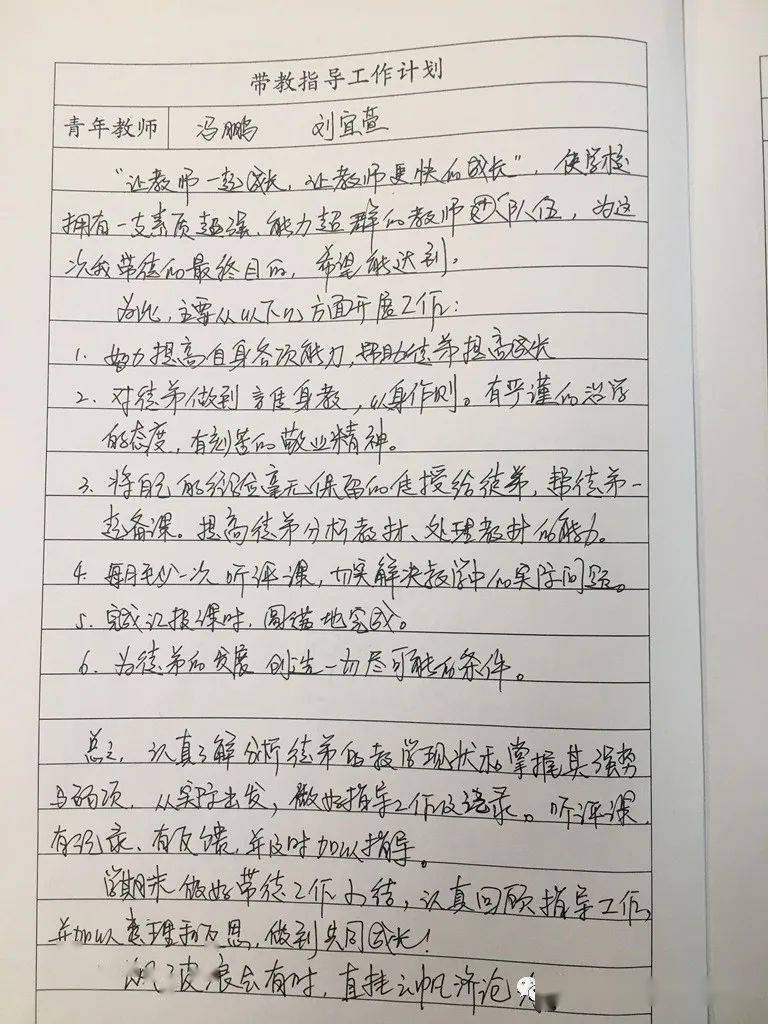 带教指导工作计划
青年教师 冯鹏 刘宜萱
“让教师一起成长,让教师更快的成长”,使学校
拥有一支素质超强、能力超群的教师队伍,为这
次我带徒的最终目的,希望能达到。
为此,主要从以下几方面开展工作:
1. 努力提高自身各项能力,帮助徒弟提高成长
2. 对徒弟做到言传身教,以身作则。有严谨的治学
的态度,有刻苦的敬业精神。
3. 将自己的经验毫无保留的传授给徒弟,帮徒弟一
起备课。提高徒弟分析教材、处理教材的能力。
4. 每月至少一次听评课,切实解决教学中的实际问题。
5. 完成汇报课时,圆满地完成。
6. 为徒弟的发展创造一切尽可能的条件。
总之,认真了解分析徒弟的教学现状和掌握其强势
与弱项,从实际出发,做好指导工作及记录。听评课,
有记录、有反馈,并及时加以指导。
学期末做好带徒工作小结,认真回顾指导工作,
并加以整理和反思,做到共同成长!
浪会有时,直挂云帆济沧